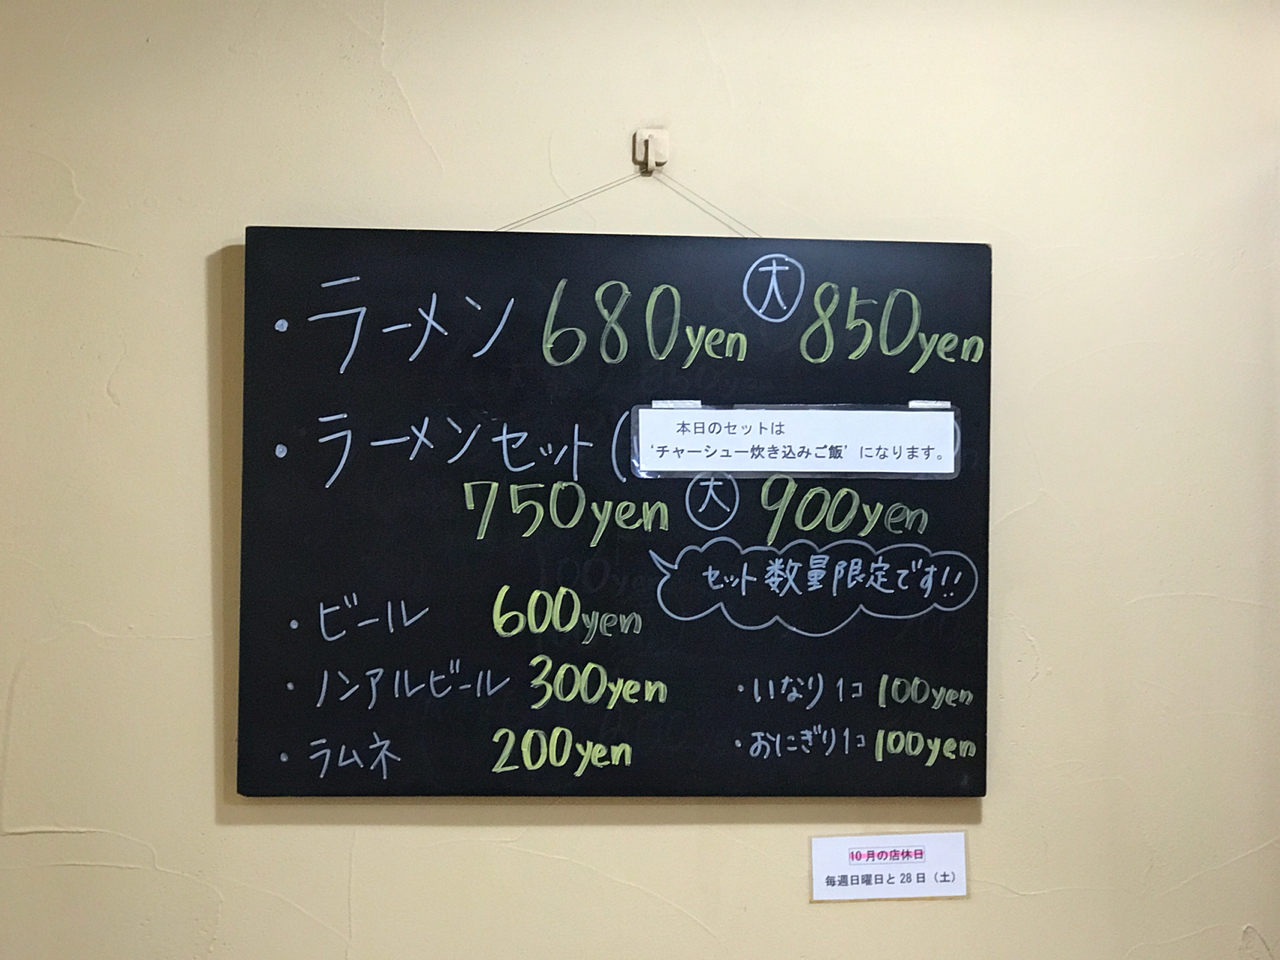 ・ラーメン 680yen ㊤大 850yen
・ラーメンセット(
本日のセットは
‘チャーシュー炊き込みご飯’になります。
750yen 大 900yen
セット数量限定です!!
・ビール 600yen
・ノンアルビール 300yen
・ラムネ 200yen
・いなり1コ 100yen
・おにぎり1コ 100yen
10月の店休日
毎週日曜日と28日（土）